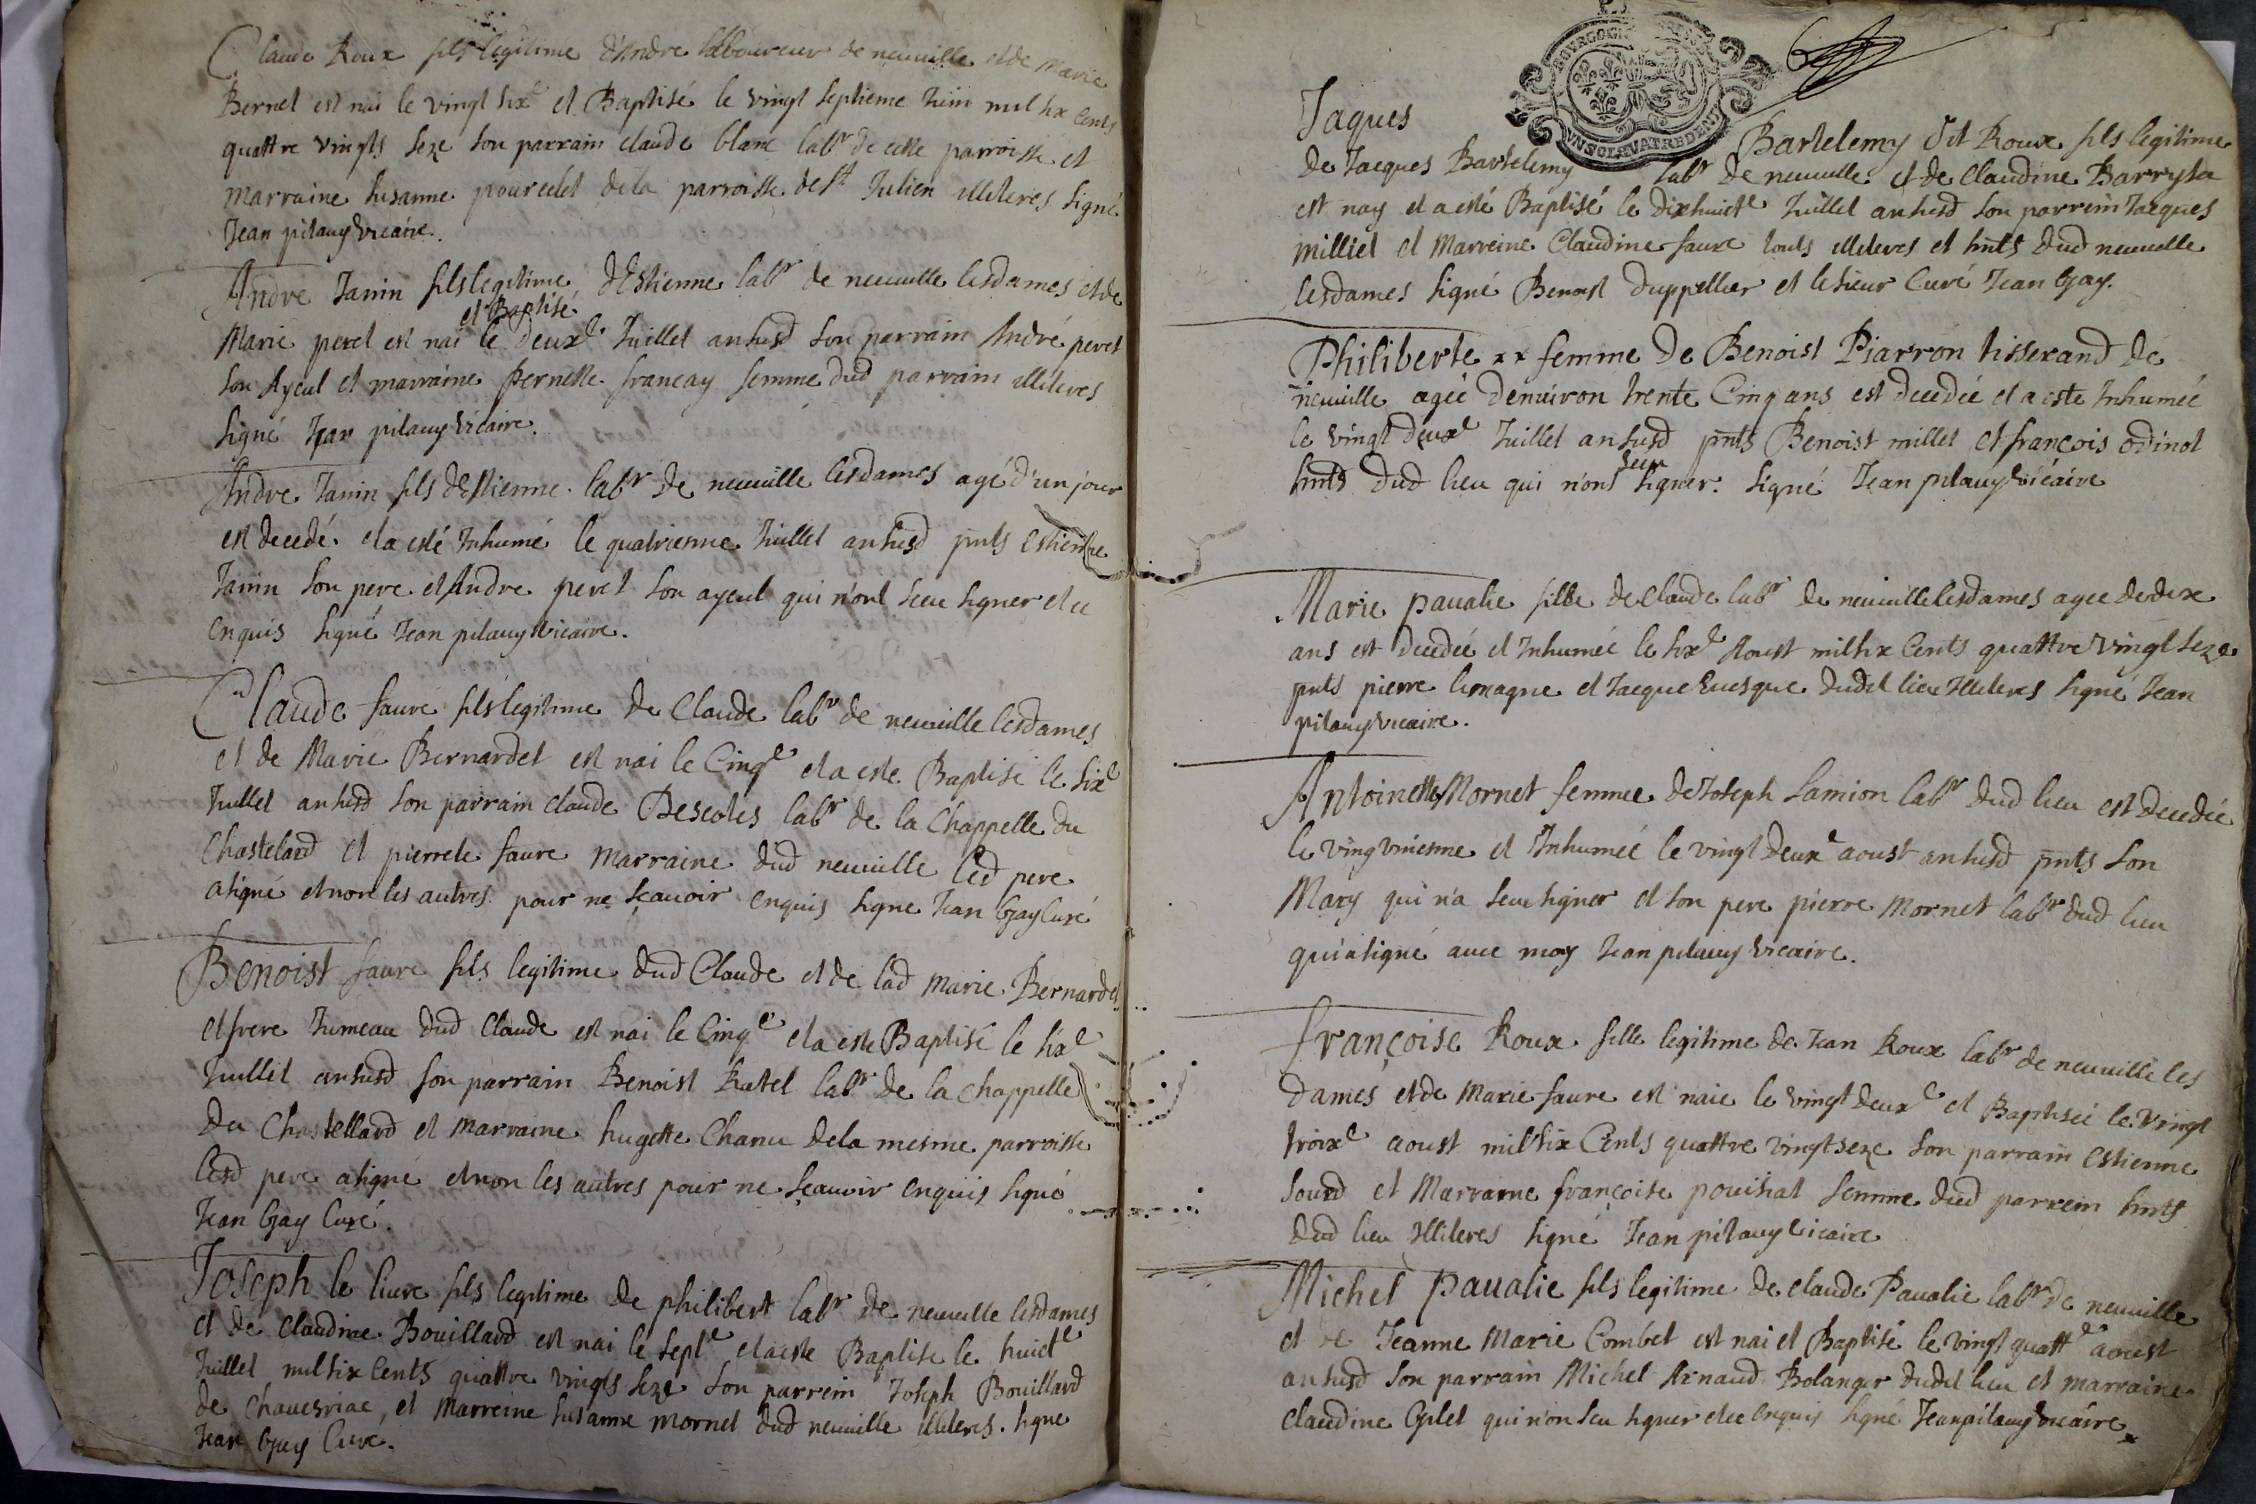 Claude Roux fils legitime d'Andre laboureur de neuuille et de Marie
Bernet est nai le vingt six.e et Baptisé le vingt septieme Juin mil six Cents
quattre vingts seze son parrain claude blanc lab.r de cette parroisse et
marraine susanne pourcelet de la parroisse de S.t Julien illiteres signé
Jean pilauy vicaire.
Andre Janin fils legitime, d'Estienne lab.r de neuuille lesdames et de
et Baptisé
Marie peret est nai le deux.e Juillet ansusd son parrain André peret
son Ayeul et marraine Pernette francay femme dud parrain illiteres
signé Jean pilauy vicaire.
Andre Janin fils d'Estienne lab.r de neuuille lesdames agé d'un jour
est decedé et a esté Inhumé le quatrieme Juillet ansusd pnts Estienne
Janin son pere et Andre peret son ayeul qui n'ont sceu signer et ce
enquis signé Jean pilauy vicaire.
Claude faure fils legitime de Claude lab.r de neuuille lesdames
et de Marie Bernardet est nai le Cinq.e et a este Baptisé le six.e
Juillet ansusd son parrain claude Descoles lab.r de la Chappelle du
Chastelard et pierrete faure marraine dud neuuille led pere
a signé et non les autres pour ne sçauoir enquis signe Jean Gay Curé
Benoist faure fils legitime dud Claude et de lad Marie Bernardet
et frere Jumeau dud Claude est nai le Cinq.e et a este Baptisé le six.e
Juillet ansusd son parrain Benoist Ratel lab.r de la Chappelle
du Chastellard et marraine hugette Chanu dela mesme parroisse
lesd pere a signé et non les autres pour ne sçauoir enquis signé
Jean Gay Curé.
Joseph le liure fils legitime de philibert lab.r de neuuille lesdames
et de claudine Bouillard est nai le sept.e et a este Baptise le huict.e
Juillet mil six Cents quattre vingts seze son parrein Joseph Bouillard
de Chauesriac, et Marreine susanne mornet dud neuuille illiteres. signe
Jean Gay Cure.
BOURGOGNE
Jaques Bartelemy dit Roux fils legitime
de Jacques Bartelemy lab.r de neuuille et de Claudine
est nay et a esté Baptisé le dixhuict.e Juillet ansusd son parrein Jacques
milliet et Marreine Claudine faure touts illiteres et hnts dud neuuille
lesdames signé Benoist Duppellier et le sieur Curé Jean Gay.
Philiberte xx femme de Benoist Piarron tisserand de
neuuille agée denuiron trente Cinq ans est decedée et a este Inhumée
le vingt deux.e Juillet ansusd pnts Benoist millet et françois odinot
hnts dud lieu qui n'ont sceu signer. signé Jean pilauy vicaire
Marie paualie fille de Claude lab.r de neuuille lesdames agee de deux
ans est decedée et Inhumée le six.e Aoust mil six Cents quattre vingt seze
pnts pierre limagne et Jacque Euesque dudit lieu Illiteres signé Jean
pilauy vicaire.
Antoinette Mornet femme de Joseph Lamion lab.r dud lieu est decedée
le vingvnieme et Inhumée le vingt deux.e aoust ansusd pnts son
Mary qui n'a sceu signer et son pere pierre Mornet lab.r dud lieu
qui a signé auec moy Jean pilauy vicaire.
françoise Roux fille legitime de Jean Roux lab.r de neuuille les
dames et de Marie faure est naie le vingt deux.e et Baptisée le Vingt
troix.e aoust mil six Cents quattre vingt seze son parrain Estienne
Sourd et Marraine françoise pouisat femme dud parrein hnts
dud lieu Illiteres signé Jean pilauy vicaire
Michel paualie fils legitime de claude Paualie lab.r de neuuille
et de Jeanne Marie Combet est nai et Baptisé le vingt quatt.e aoust
ansusd son parrain Michel Arnaud Bolanger dudit lieu et marraine
claudine Gplet qui n'on sceu signer et ce enquis signé Jean pilauy vicaire